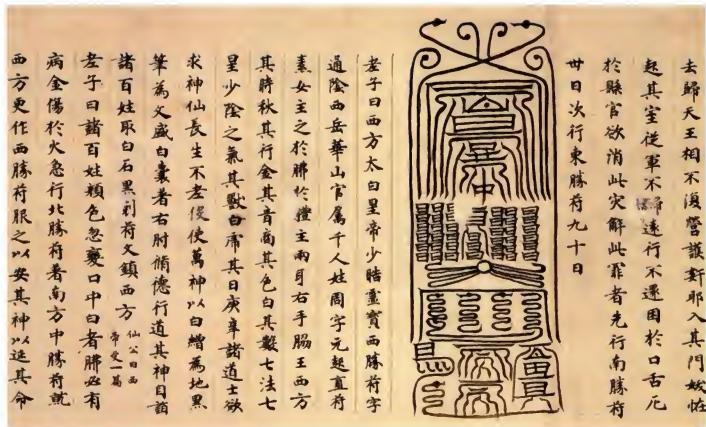 去歸天王相不復營護姧耶入其門妖恠
起其室從軍不歸遠行不還困於口舌厄
於縣官欲消此灾解此罪者先行南勝符
卅日次行東勝符九十日
老子曰西方太白皇帝少皓靈寶西勝符字
通陰西岳華山官屬千人姓周字元起直符
素女主之於肺於體主兩耳右手腸王西方
其時秋其行金其音商其色白其數七法七
星少陰之氣其獸白虎其日庚辛諸道士欲
求神仙長生不老役使萬神以白繒為地黑
筆為文盛白囊著右肘脩德行道其神自詣
諸百姓取白石黑刺符文鎮西方仙公曰西
帝受一萬
老子曰諸百姓顏色忽變口中白者肺必有
病金傷於火急行北勝符著南方中勝符就
西方更作西勝符服之以安其神以延其命